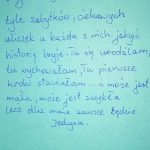 tyle zabytków, ciekawych
uliczek a każda z nich jakąś
historię kryje. Tu się urodziłam,
tu wychowałam. Tu pierwsze
kroki stawiałam... a może jest
mała, może jest zwykła
lecz dla mnie zawsze będzie
Jedyna.